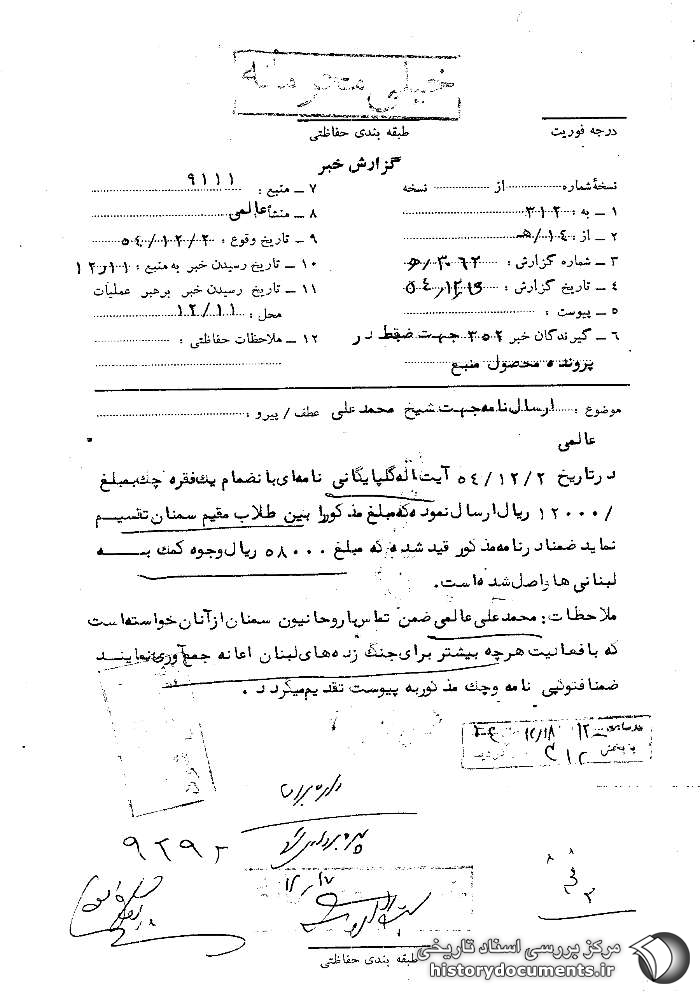 خیلی محرمانه
طبقه بندی حفاظتی
درجه فوریت
گزارش خبر
نسخهٔ شماره ........ از ........ نسخه
۱ – به : ۳۱۲
۲ – از : ۱۴/هـ
۳ – شماره گزارش :
۴ – تاریخ گزارش :
۵ – پیوست :
۶ – گیرندگان خبر ۳۵۲ جهت ضبط در
پرونده محصول منبع
۷ – منبع : ۹۱۱۱
۸ – منشأ عالمی
۹ – تاریخ وقوع : ۵۴/۱۲/۲
۱۰ – تاریخ رسیدن خبر به منبع : ۱۲/۱۱
۱۱ – تاریخ رسیدن خبر برهبر عملیات
محل : ۱۲/۱۱
۱۲ – ملاحظات حفاظتی :
موضوع : ارسال نامه جهت شیخ محمدعلی عطف / پیرو :
عالمی
در تاریخ ۵۴/۱۲/۲ آیت اله گلپایگانی نامه ای بانضمام یك فقره چك بمبلغ
/۱۲۰۰۰ ریال ارسال نموده که مبلغ مذکور را بین طلاب مقیم سمنان تقسیم
نماید ضمنا در نامه مذکور قید شده که مبلغ ۵۸۰۰۰ ریال وجوه کمك به
لبنانی ها واصل شده است.
ملاحظات : محمدعلی عالمی ضمن تماس با روحانیون سمنان از آنان خواسته است
که با فعالیت هرچه بیشتر برای جنگ زده های لبنان اعانه جمع آوری نمایند
ضمنا فتوکپی نامه و چك مذکور به پیوست تقدیم میگردد .
۱۲/۱۸
۳۱۲
۹۲۹۲
۱۲/۱۷
طبقه بندی حفاظتی
مرکز بررسی اسناد تاریخی
historydocuments.ir